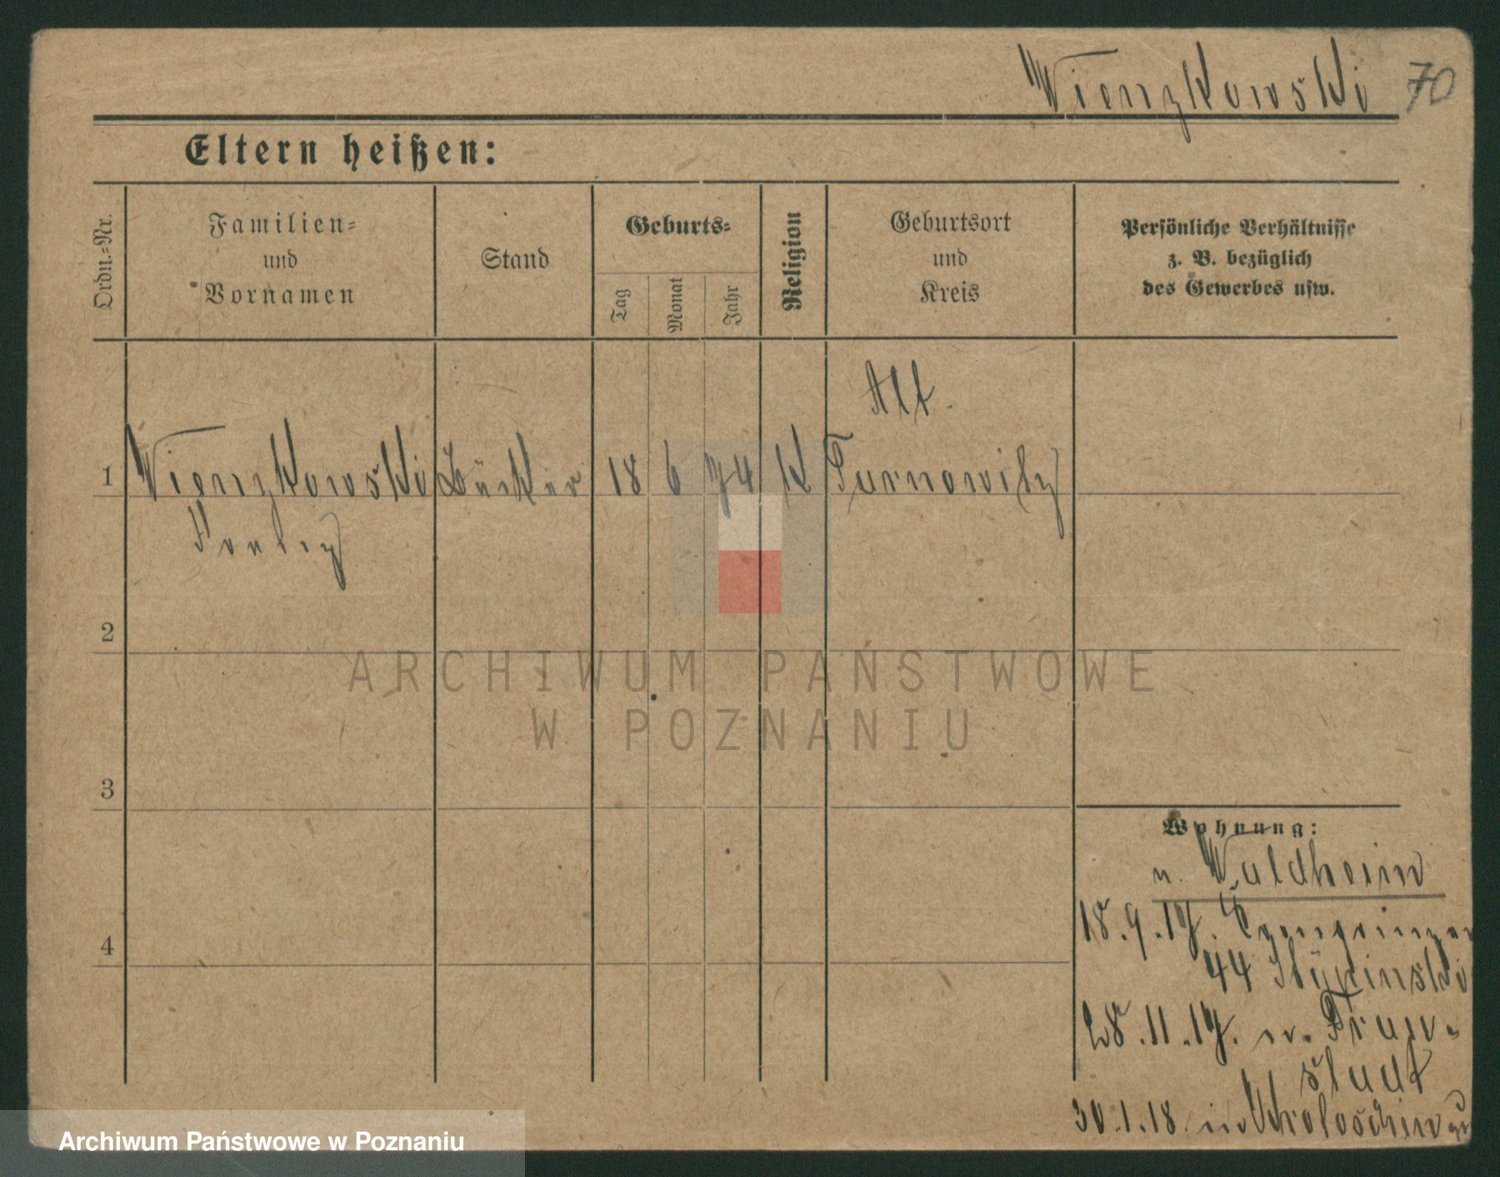 Wienzkowski 70
Eltern heißen:
Ordn.-Nr.
Familien-
und
Vornamen
Stand
Geburts-
Tag
Monat
Jahr
Religion
Geburtsort
und
Kreis
Persönliche Verhältnisse
z. B. bezüglich
des Gewerbes usw.
Alt
1 Wienzkowski Bäcker 18 6 74 K Tarnowitz
2
3
4
Wohnung:
n. Waldheim
18.9.17.
44
28.11.17. n. Frau-
stadt
30.1.18. in Krotoschin
ARCHIWUM PAŃSTWOWE
W POZNANIU
Archiwum Państwowe w Poznaniu